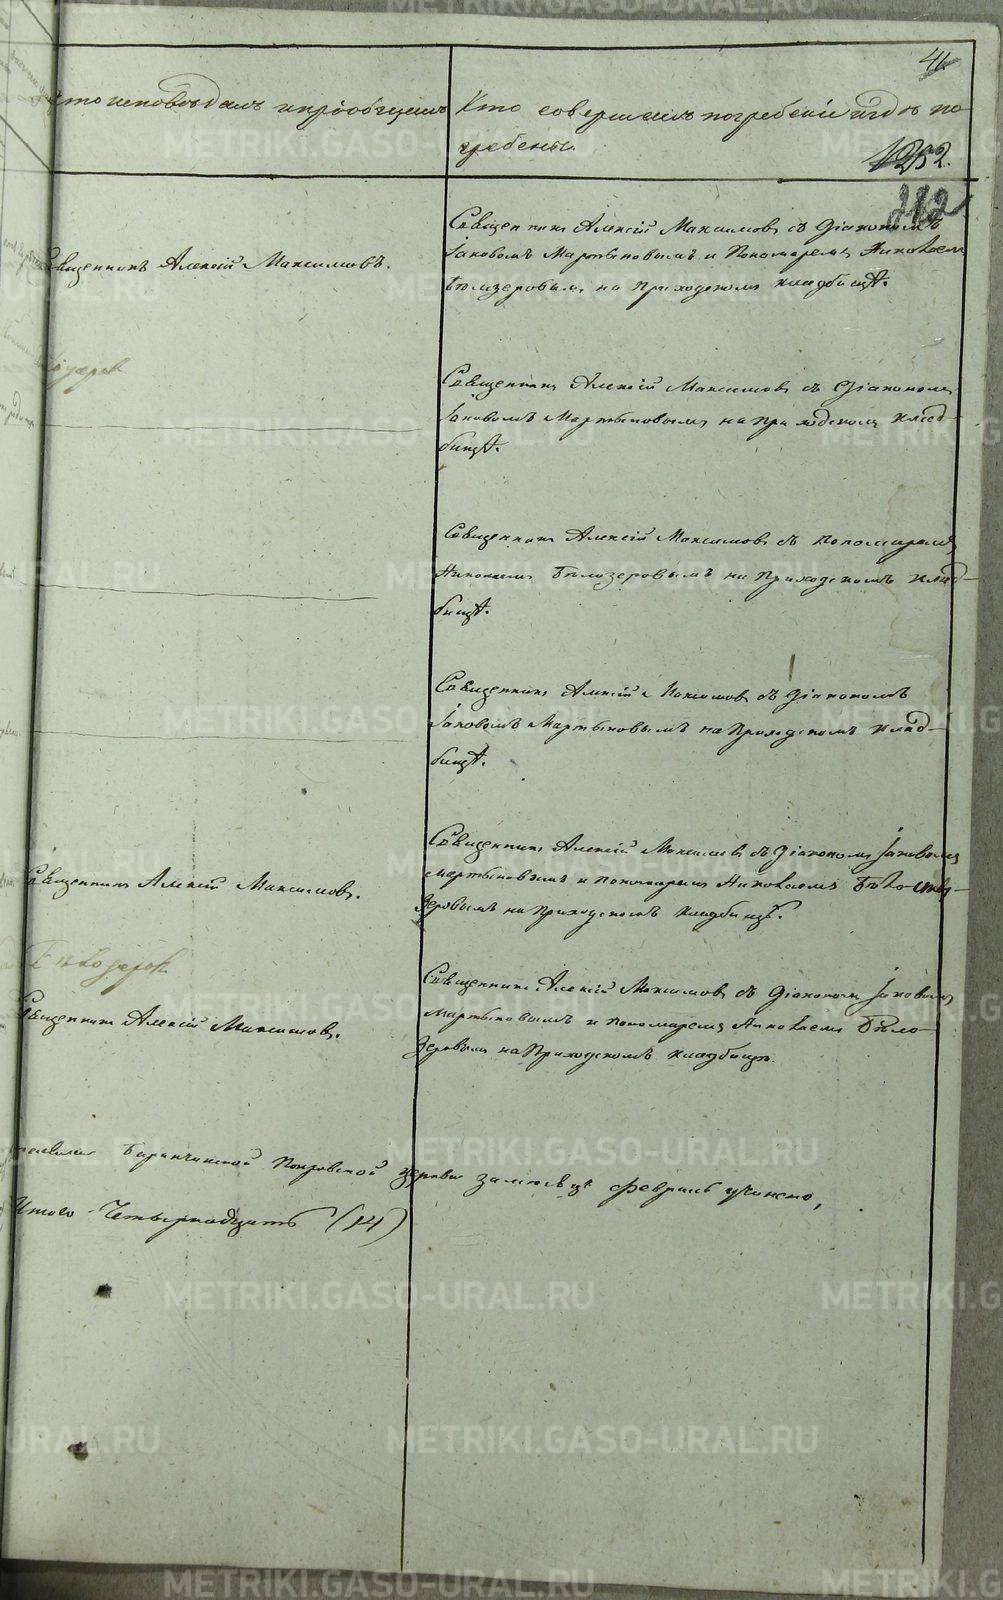 41
Кто исповѣдалъ и пріобщалъ
Кто совершалъ погребеніе и гдѣ по
гребены.
1252.
212
Священникъ Алексій Максимовъ.
Священникъ Алексій Максимовъ съ Діакономъ
Іаковомъ Мартыновымъ и Пономаремъ Николаемъ
Бѣлозеровымъ на Приходскомъ кладбищѣ.
Священникъ Алексій Максимовъ съ Діакономъ
Іаковомъ Мартыновымъ на Приходскомъ клад-
бищѣ.
Священникъ Алексій Максимовъ съ Пономаремъ
Николаемъ Бѣлозеровымъ на Приходскомъ клад-
бищѣ.
Священникъ Алексій Максимовъ съ Діакономъ
Іаковомъ Мартыновымъ на Приходскомъ клад-
бищѣ.
Священникъ Алексій Максимовъ.
Священникъ Алексій Максимовъ съ Діакономъ Іаковомъ
Мартыновымъ и Пономаремъ Николаемъ Бѣло-
зеровымъ на Приходскомъ кладбищѣ.
Священникъ Алексій Максимовъ.
Священникъ Алексій Максимовъ съ Діакономъ Іаковомъ
Мартыновымъ и Пономаремъ Николаемъ Бѣло-
зеровымъ на Приходскомъ кладбищѣ.
Баранчинской Покровской церкви за мѣсяцъ Февраль учинено,
Итого Четырнадцать (14)
METRIKI.GASO-URAL.RU